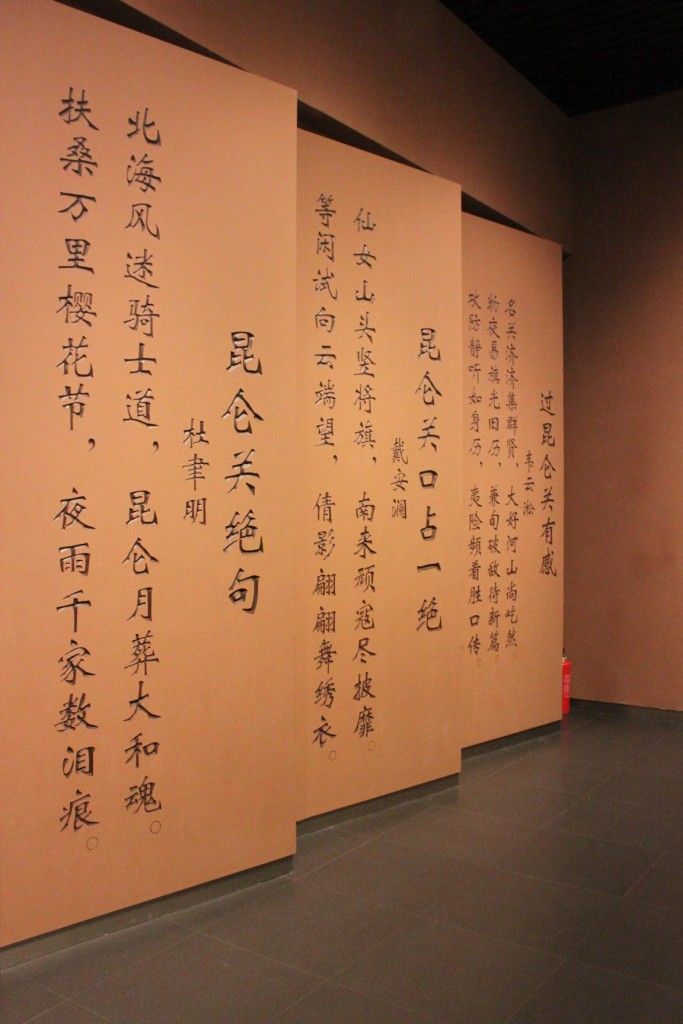 过昆仑关有感
韦云淞
名关济济集群贤，大好河山尚屹然
夜易旗光旧历，兼旬破敌待新篇。
攻防静听如身历，夷险频看胜口传。
昆仑关口占一绝
戴安澜
仙女山头竖将旗，南来顽寇尽披靡。
等闲试向云端望，倩影翩翩舞绣衣。
昆仑关绝句
杜聿明
北海风迷骑士道，昆仑月葬大和魂。
扶桑万里樱花节，夜雨千家数泪痕。